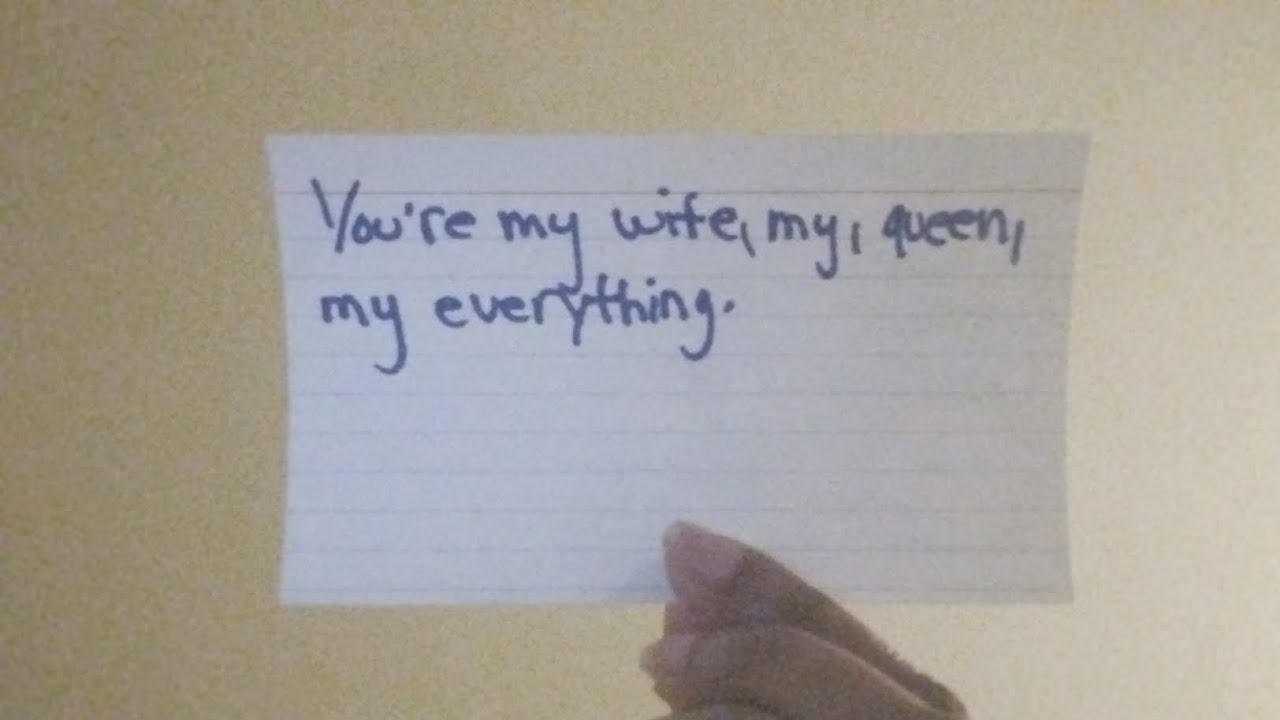 You're my wife, my, queen,
my everything.